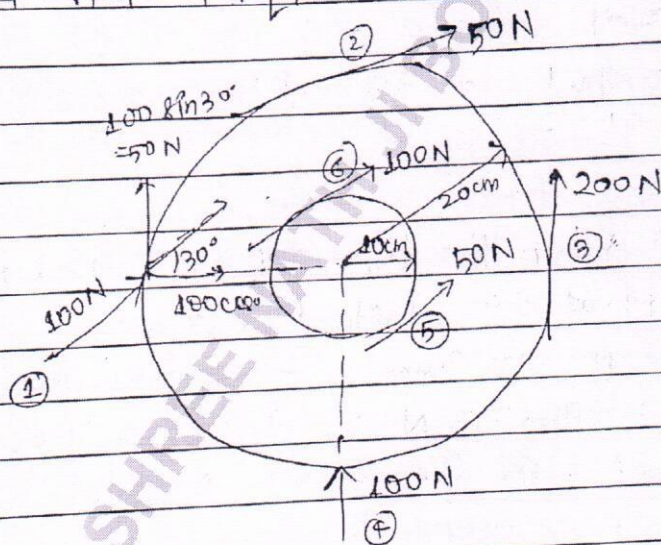 ② 50N
100 sin30°
=50N
⑥ 100N
20cm
200N
30°
10cm
50N
③
100N
100cos
⑤
①
100N
④
SHREE NATH JI BO